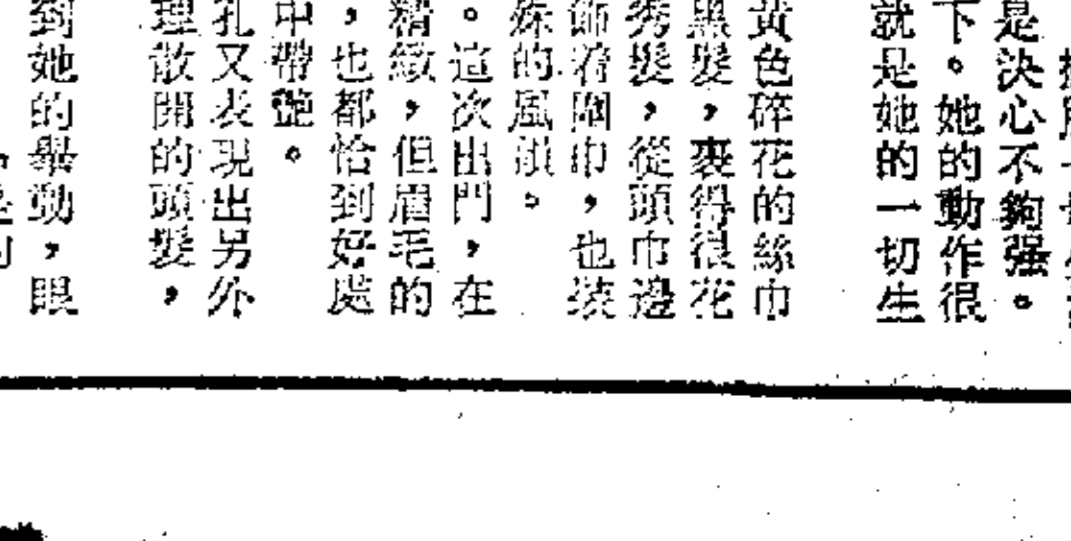 是決心不夠强。
下。她的動作很
就是她的一切生
黃色碎花的絲巾
黑髮，裹得很花
秀髮，從頭巾邊
飾着闊巾，也裝
殊的風韻。
。這次出門，在
精緻，但眉毛的
，也都恰到好處
中帶艷。
孔又表現出另外
理散開的頭髮，
到她的舉動，眼